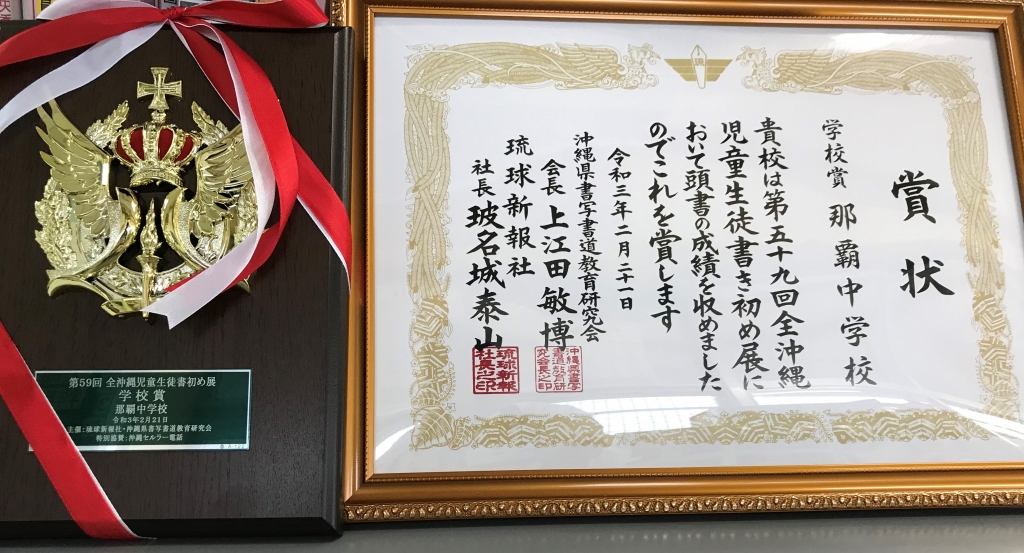 第59回 全沖縄児童生徒書初め展
学校賞
那覇中学校
令和3年2月21日
主催:琉球新報社・沖縄県書写書道教育研究会
特別協賛:沖縄セルラー電話
賞状
学校賞 那覇中学校
貴校は第五十九回全沖縄
児童生徒書き初め展に
おいて頭書の成績を収めました
のでこれを賞します
令和三年二月二十一日
沖縄県書写書道教育研究会
会長 上江田敏博
琉球新報社
社長 玻名城泰山
沖縄県書写
書道教育研
究会会長之印
琉球新報
社社長之印